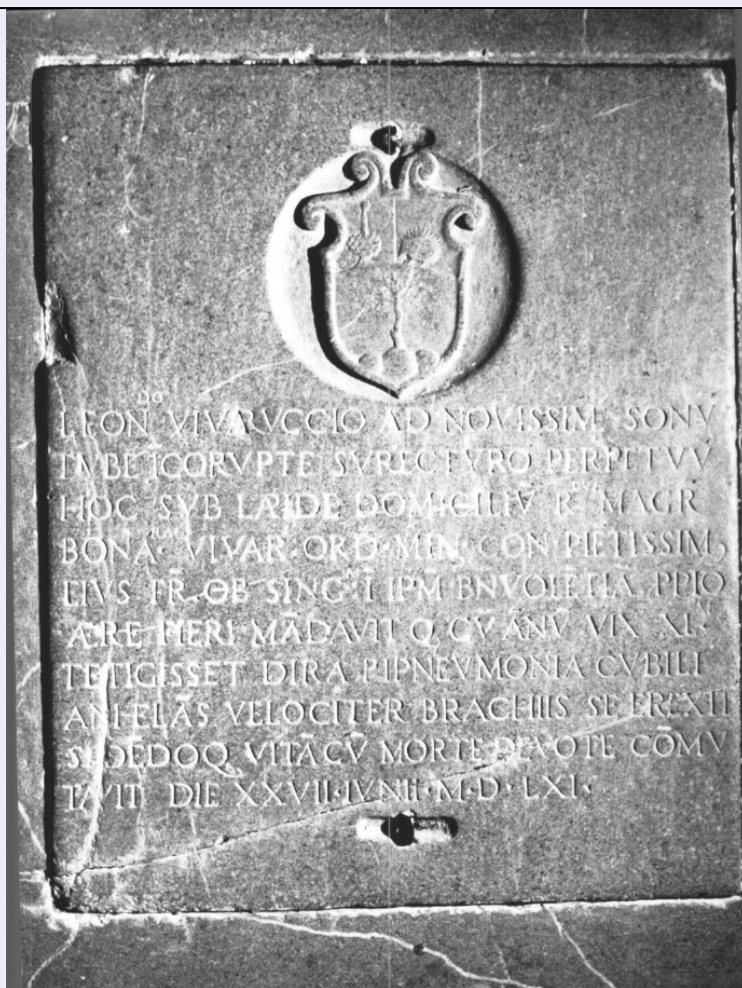 LEON^DO VIVARVCCIO AD NOVISSIM SONV
TVBĒ ĪCORVPTE SVRECTVRO PERPETVV
HOC SVB LAPIDE DOMICILIV̄ R^DVS MAGR
BONA^RA VIVAR· ORD· MIN· CON· PIĒTISSIM,
EIVS FR̄ OB SING· Ī IPM̄ BNVOLĒTIĀ PPIO
ÆRE FIERI MĀDAVIT Q CV̄ ANV̄ VIX XL·
TETIGISSET DIRA PIPNEVMONIA CVBILI
ANELĀS VELOCITER BRACHIIS SE EREXIT
SEDĒDOQ VITĀ CV̄ MORTE DEVOTE CŌMV
TAVIT DIE XXVII·IVNII·M·D·LXI·